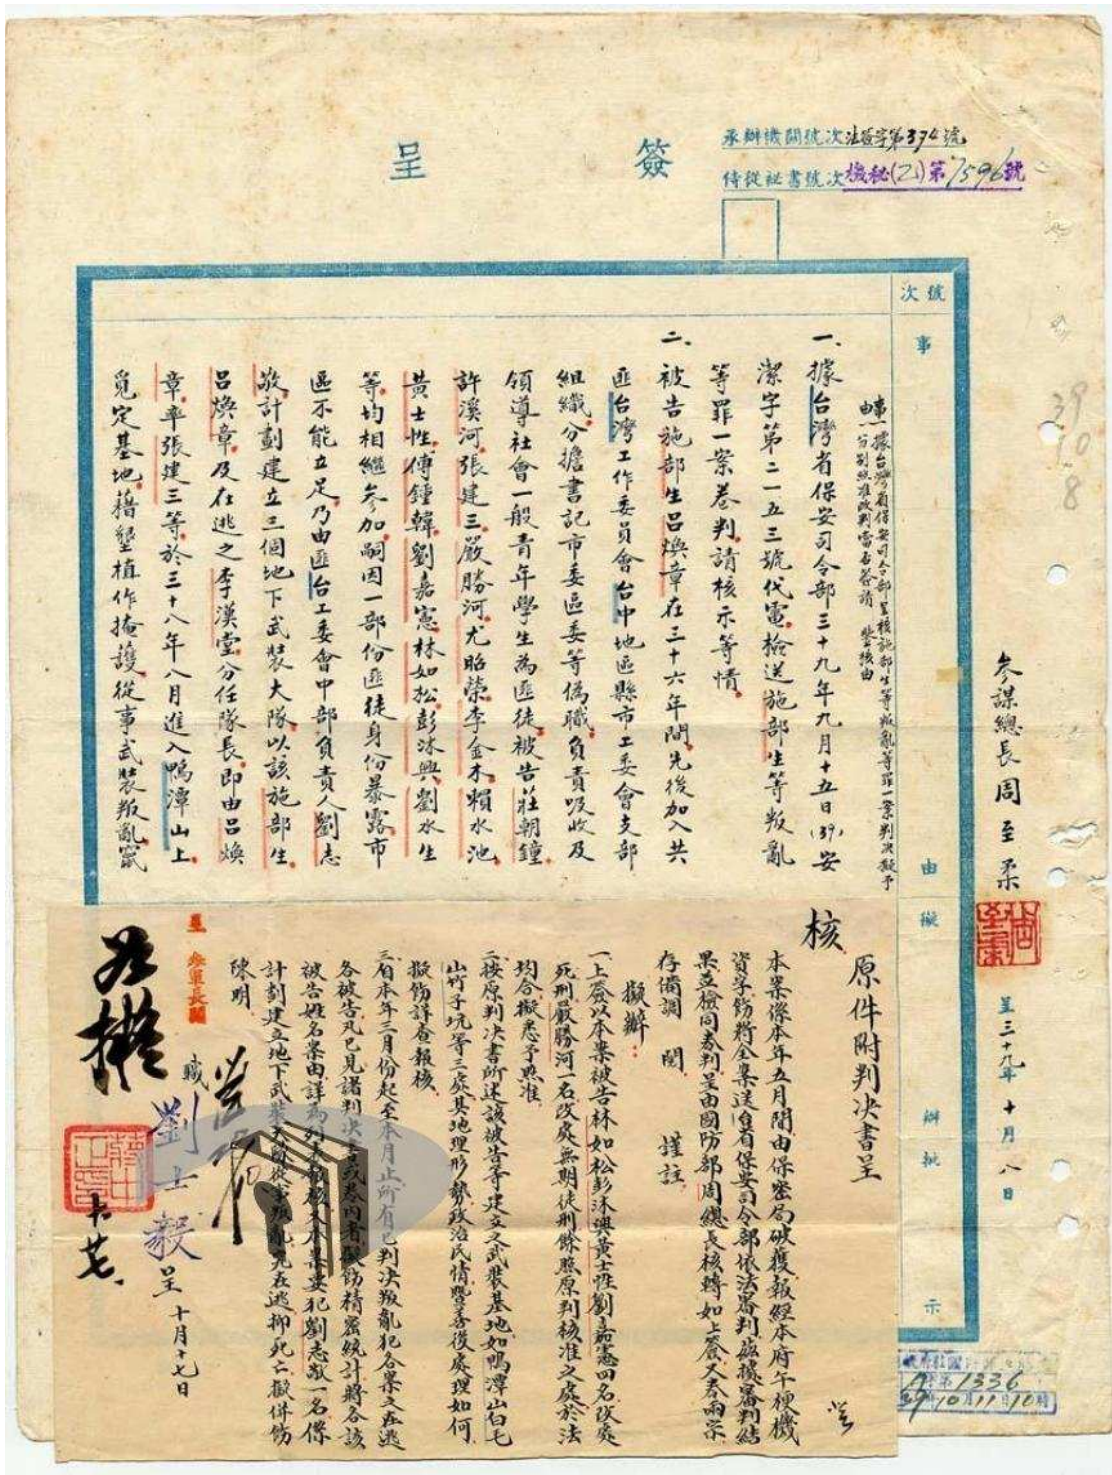 簽呈
承辦機關號次法簽字第374號
侍從祕書號次機秘(乙)第7596號
參謀總長周至柔
呈三十九年十月八日
39
10
8
號次
事由
擬辦
批示
事一據台灣省保安司令部呈核施部生等叛亂等罪一案判決擬予
由一分別照准改判當否簽請 鑒核由
一、據台灣省保安司令部三十九年九月十五日(39)安
潔字第二一五三號代電檢送施部生等叛亂
等罪一案卷判請核示等情
二、被告施部生呂煥章在三十六年間先後加入共
匪台灣工作委員會台中地區縣市工委會支部
組織分擔書記市委區委等偽職負責吸收及
領導社會一般青年學生為匪徒被告莊朝鐘
許溪河張建三嚴勝河尤昭榮李金木賴水池
黃士性傅鐘韓劉嘉憲林如松彭沐興劉水生
等均相繼參加嗣因一部份匪徒身份暴露市
區不能立足乃由匪台工委會中部負責人劉志
敬計劃建立三個地下武裝大隊以該施部生
呂煥章及在逃之李漢堂分任隊長即由呂煥
章率張建三等於三十八年八月進入鴨潭山上
覓定基地藉墾植作掩護從事武裝叛亂竄
原件附判決書呈
核
本案係本年五月間由保密局破獲報經本府午梗機
資字飭將全案送台省保安司令部依法審判茲據審判結
果並檢同卷判呈由國防部周總長核轉如上簽又卷兩宗
存備調閱 謹註
擬辦：
一上簽以本案被告林如松彭沐興黃士性劉嘉憲四名改處
死刑嚴勝河一名改處無期徒刑餘照原判核准之處於法
均合擬悉予照准
二按原判決書所述該被告等建立之武裝基地如鴨潭山白毛
山竹子坑等三處其地理形勢政治民情暨善後處理如何
擬飭詳查報核
三自本年三月份起至本月止所有已判決叛亂犯各案之在逃
各被告凡已見諸判決書或卷內者擬飭精密統計將各該
被告姓名案由詳為列表報核又本案要犯劉志敬一名係
計劃建立地下武裝大隊從事叛亂究在逃抑死亡擬併飭
陳明
職劉士毅呈十月十七日
呈 參軍長閱
如擬
1336
39 10 11 10時